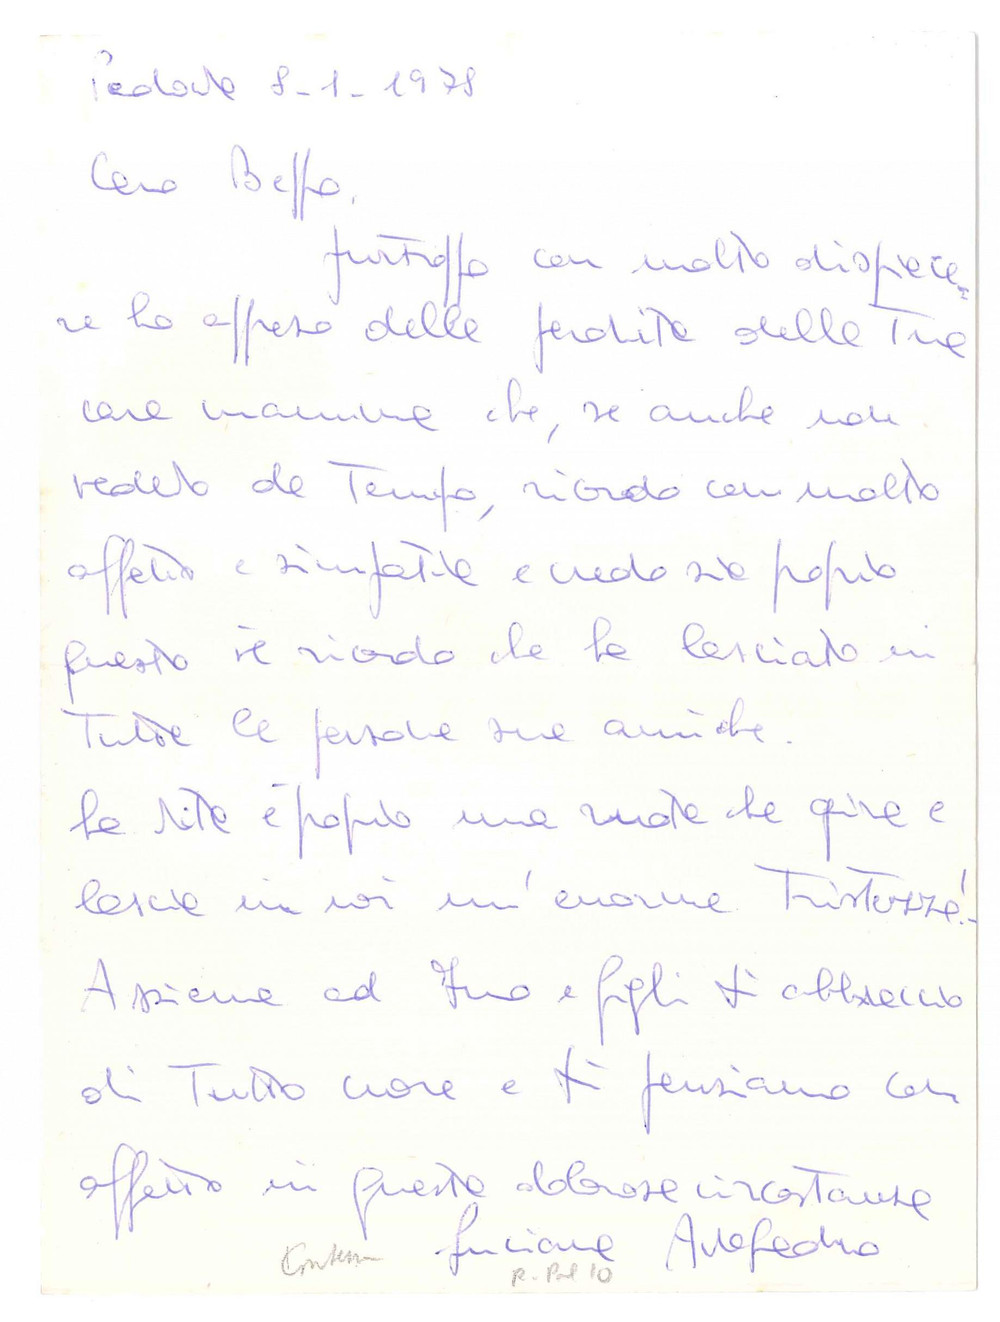 Padova 8-1-1978
Caro Beppo,
purtroppo con molto dispiace-
re ho appreso della perdita della Tua
cara mamma che, se anche non
vedevo da Tempo, ricordo con molto
affetto e simpatia e credo sia proprio
questo il ricordo che ha lasciato in
Tutte le persone sue amiche.
La vita è proprio una ruota che gira e
lascia in noi un'enorme Tristezza!-
Assieme ad Ino e figli ti abbraccio
di Tutto cuore e ti pensiamo con
affetto in queste dolorose circostanze
Luciana